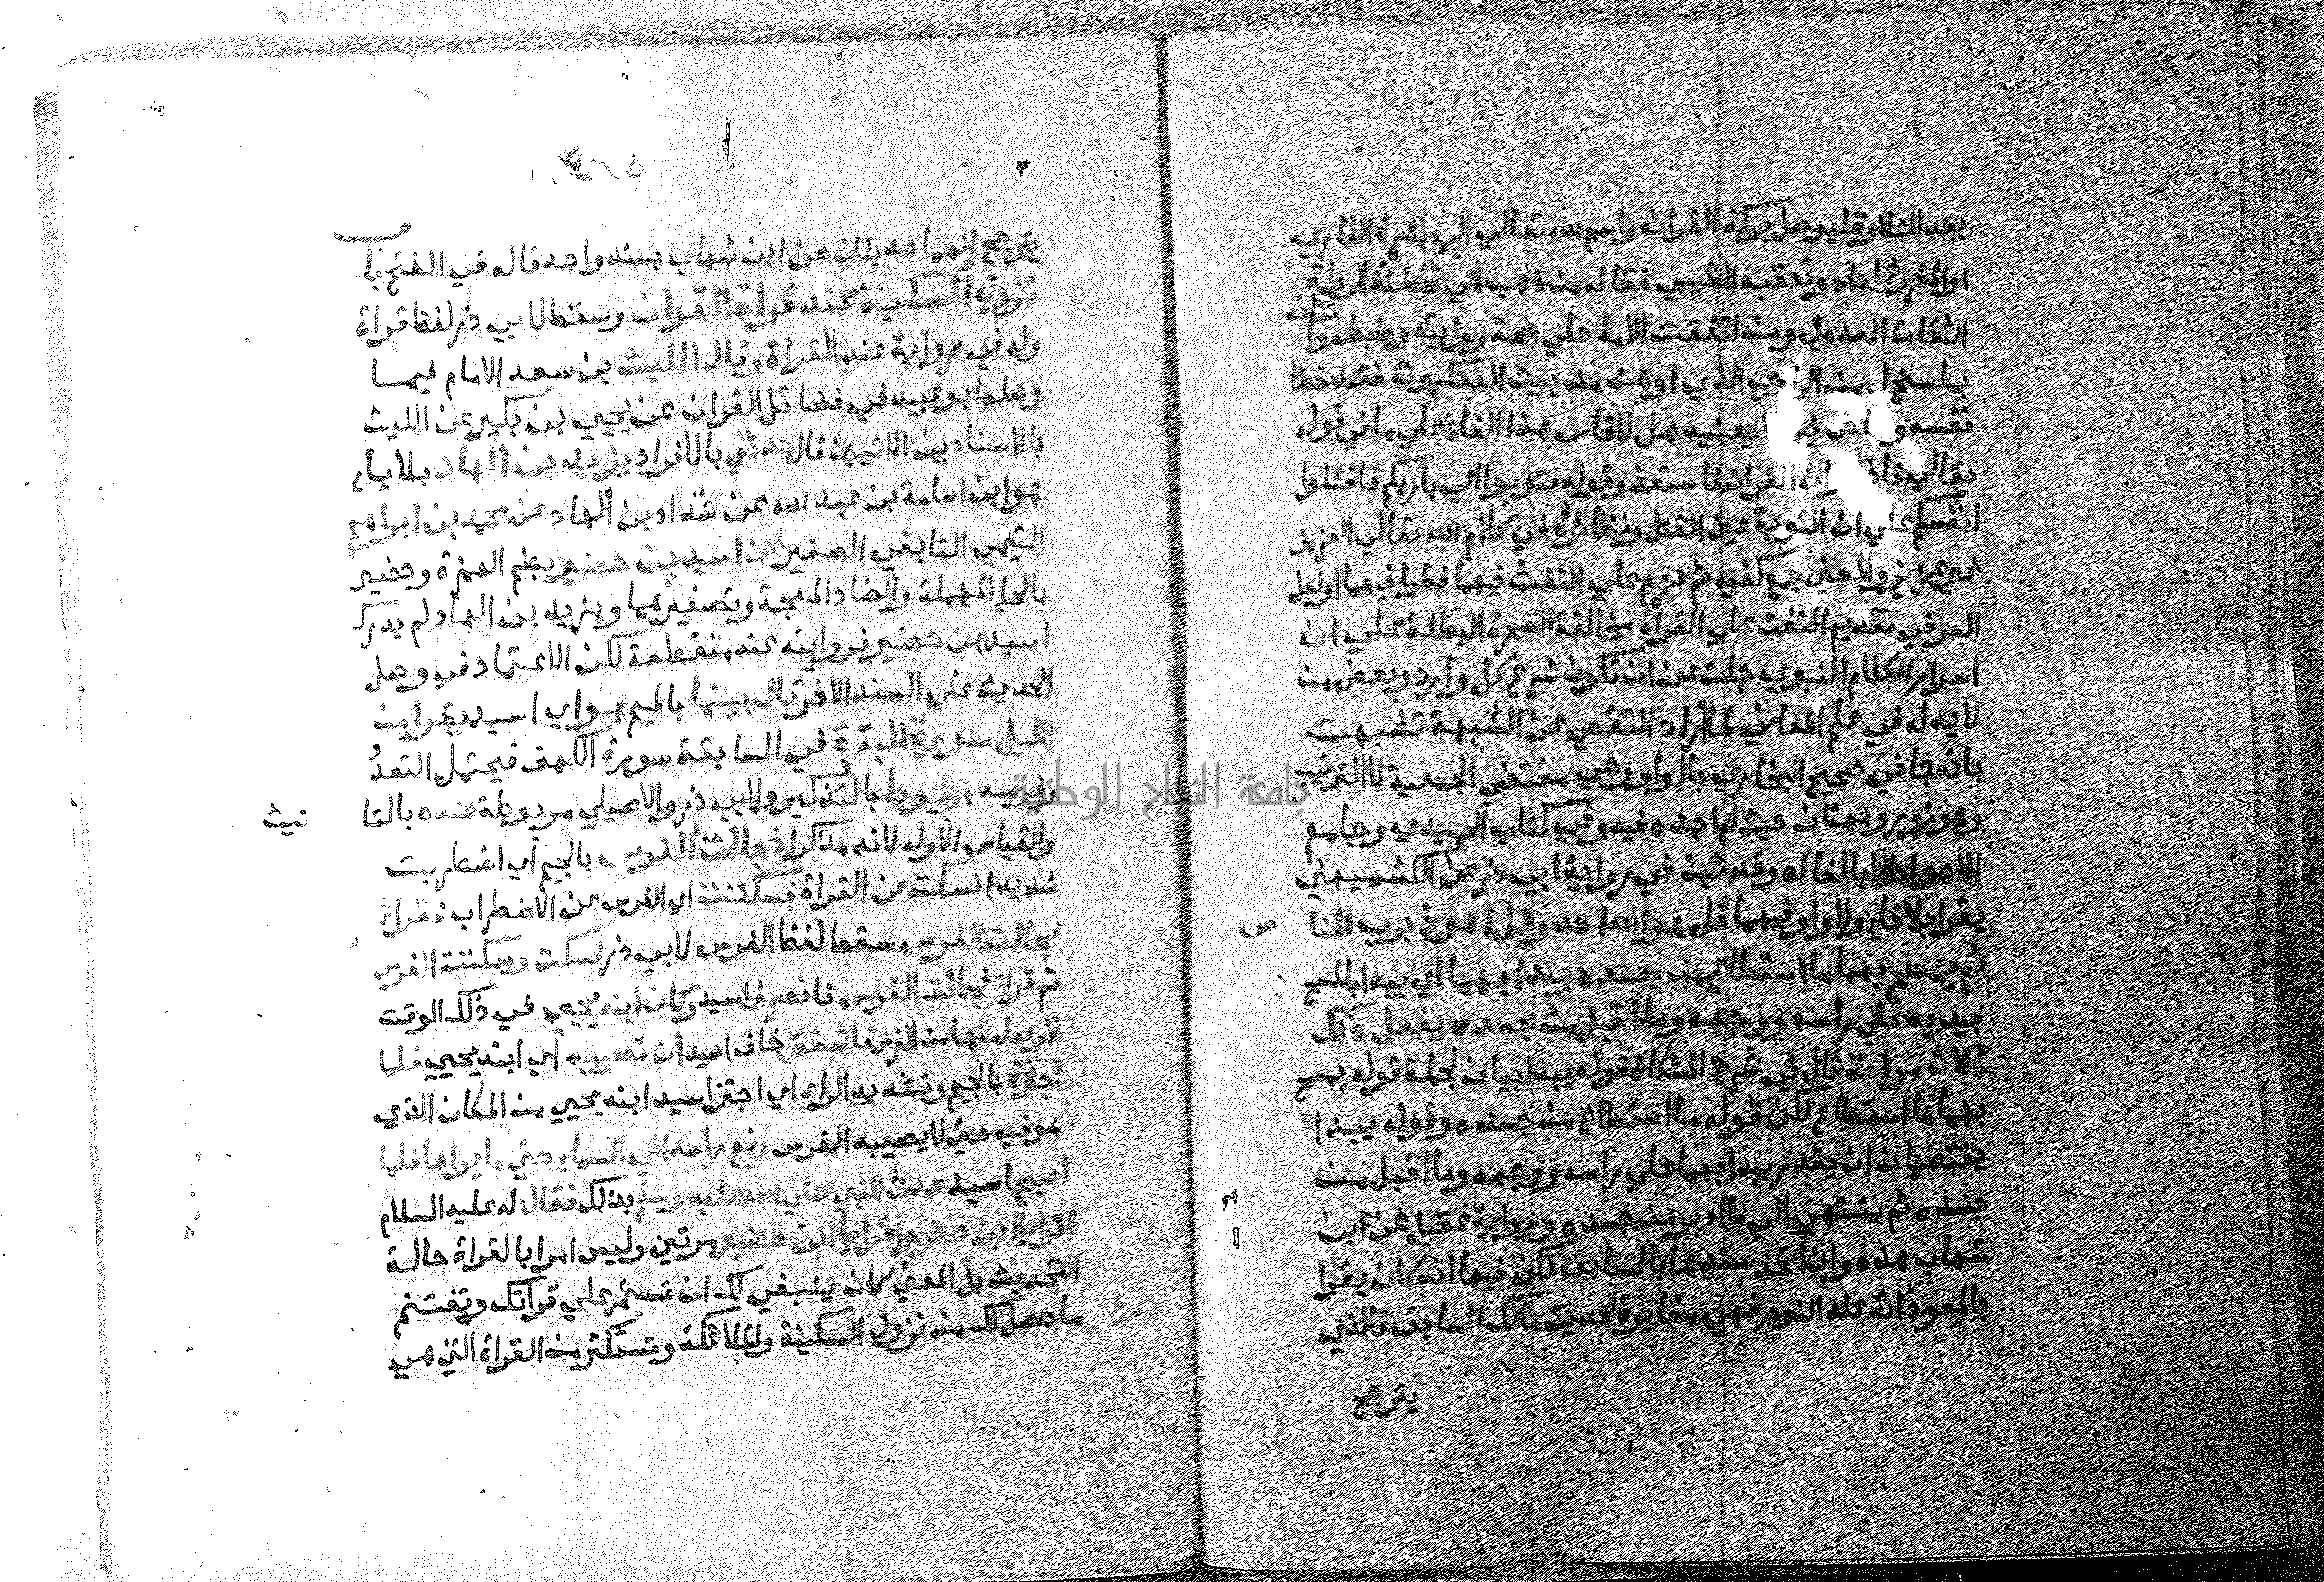 بعد التلاوة ليوصل بركة القران واسم الله تعالي الي بشرة القاري
او المقروء له اه وتعقبه الطيبي فقال من ذهب الي تخطئة الرواة
الثقات العدول ومن اتفقت الامة علي صحة روايته وضبطه واتقانه
بما سنح له من الراي الذي اوهن من بيت العنكبوت فقد خطا
نفسه وخاض فيما لا يعنيه هل لا قاس هذا الفاء علي ما في قوله
تعالي فاذا قرات القران فاستعذ وقوله فتوبوا الي باريكم فاقتلوا
انفسكم علي ان التوبة عين القتل ونظائره في كلام الله تعالي العزيز
غير عزيز والمعني جمع كفيه ثم عزم علي النفث فيهما فقرا فيهما او لعل
السر في تقديم النفث علي القراة مخالفة السحرة البطلة علي ان
اسرار الكلام النبوي جلت عن ان تكون شرع كل وارد وبعض من
لا يد له في علم المعاني لما اراد التقصي عن الشبهة تشبهت
بانه جا في صحيح البخاري بالواو وهي مقتضي الجمعية لا الترتيب
وهو زور وبهتان حيث لم اجده فيه وفي كتاب الحميدي وجامع
الاصول الا بالفا اه وقد ثبت في رواية ابي ذر عن الكشميهني
يقرا بلا فاء ولا واو فيهما قل هو الله احد وقل اعوذ برب الناس
ثم يمسح بهما ما استطاع من جسده يبدا بهما اي يبدا بالمسح
بيديه علي راسه ووجهه وما اقبل من جسده يفعل ذلك
ثلاث مرات قال في شرح المشكاة قوله يبدا بيان لجملة قوله يمسح
بهما ما استطاع لكن قوله ما استطاع من جسده وقوله يبدا
يقتضيان ان يقدر يبدا بهما علي راسه ووجهه وما اقبل من
جسده ثم ينتهي الي ما ادبر من جسده ورواية عقيل عن ابن
شهاب هذه وان اتحد سندها بالسابق لكن فيها انه كان يقرا
بالمعوذات عند النوم فهي مغايرة لحديث مالك السابق فالذي
يترجح
٤٦٥
يترجح انهما حديثان عن ابن شهاب بسند واحد قاله في الفتح باب
نزول السكينة عند قراة القران وسقط لابي ذر لفظ قراة
وله في رواية عند القراة وقال الليث بن سعد الامام فيما
وصله ابو عبيد في فضائل القران عن يحيي بن بكير عن الليث
بالاسنادين الاتيين قال حدثني بالافراد يزيد بن الهاد بلا ياء
هو ابن اسامة بن عبد الله عن شداد بن الهاد عن محمد بن ابراهيم
التيمي التابعي الصغير عن اسيد بن حضير بضم الهمزة وحضير
بالحاء المهملة والضاد المعجمة وتصغيرهما ويزيد بن الهاد لم يدرك
اسيد بن حضير فروايته عنه منقطعة لكن الاعتماد في وصل
الحديث علي السند الاخر قال بينما بالميم هو اي اسيد يقرا من
الليل سورة البقرة في السابقة سورة الكهف فيحتمل التعدد
وفرسه مربوط بالتذكير ولابي ذر والاصيلي مربوطة عنده بالتانيث
والقياس الاول لانه مذكر اذ جالت الفرس بالجيم اي اضطربت
شديدا فسكت عن القراة فسكنت اي الفرس عن الاضطراب فقراة
فجالت الفرس سقط لفظ الفرس لابي ذر فسكت وسكنت الفرس
ثم قراة فجالت الفرس فانصرف اسيد وكان ابنه يحيي في ذلك الوقت
قريبا منها من الفرس فاشفق خاف اسيد ان تصيبه اي ابنه يحيي فلما
اجتره بالجيم وتشديد الراء اي اجتر اسيد ابنه يحيي من المكان الذي
هو فيه حتي لا يصيبه الفرس رفع راسه الي السماء حتي ما يراها فلما
اصبح اسيد حدث النبي صلي الله عليه وسلم بذلك فقال له عليه السلام
اقرا يا ابن حضير اقرا يا ابن حضير مرتين وليس امرا بالقراة حالة
التحديث بل المعني كان ينبغي لك ان تستمر علي قراتك وتغتنم
ما حصل لك من نزول السكينة والملائكة وتستكثر من القراة التي هي
جامعة النجاح الوطنية